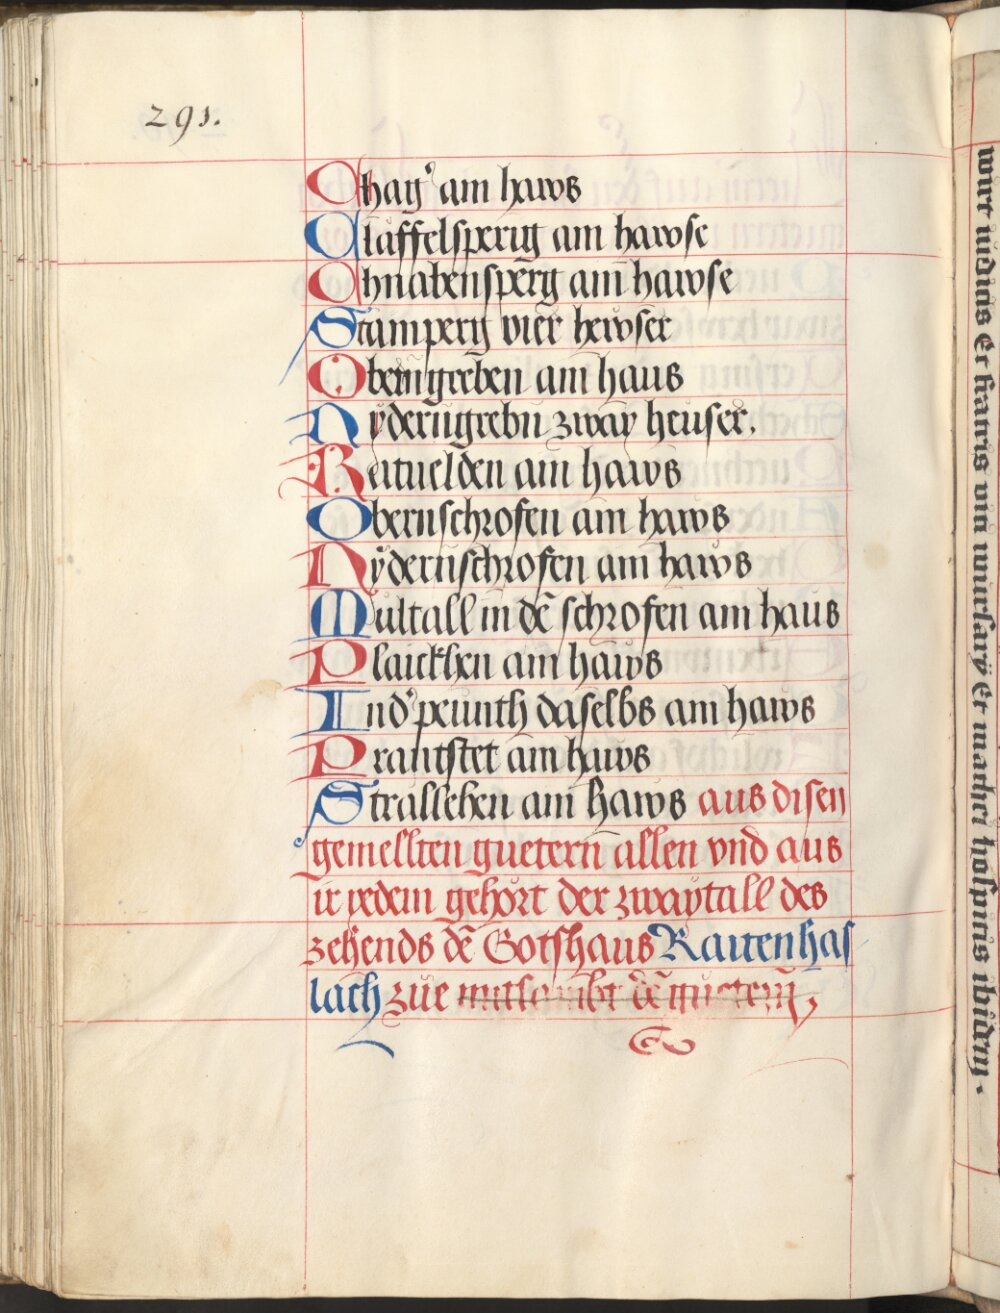 291.
Chagꝰ am haws
Claffelsperig am hawse
Chnabensperg am̄ hawse
Stamperg vier hewser
Oberngreben am haus
Nÿderngrebn zway heuser.
Reituelden am haws
Obernschrofen am haws
Nÿdernschrofen am haws
Multall in dē schrofen am haus
Plaickhen am haws
Ind' peunth daselbs am haws
Prantstet am haws
Strasslehen am haws aus disen
gemellten guetern allen vnd aus
ir yedem gehört der zwaytall des
zehends dē Gotshaus Raitenhas
lach zue mitsambt dē guetern,
wirt iudicis Et fratris
Et mathei hospitis ibidem.